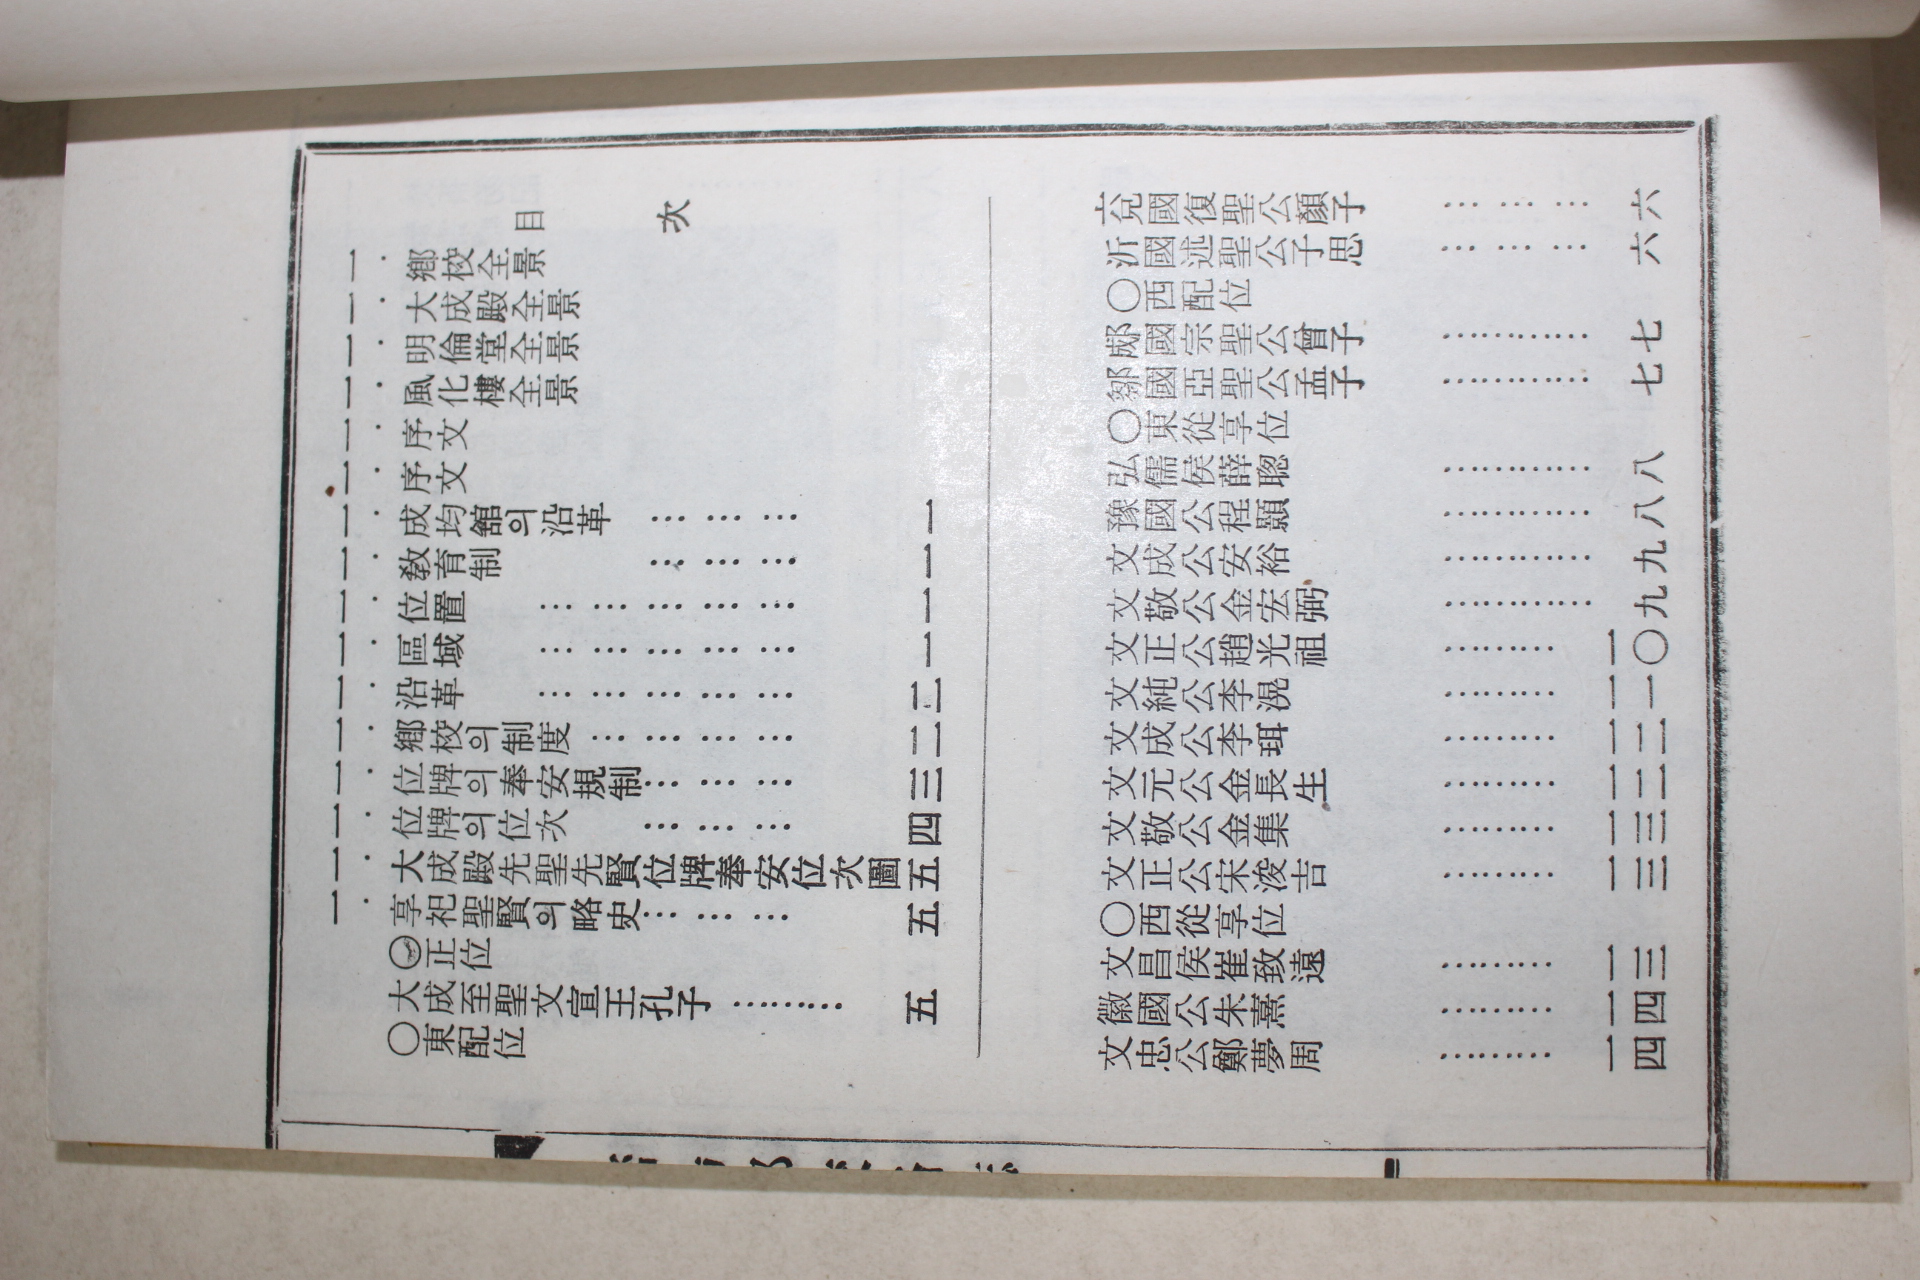 目 次
一. 鄕校全景
一. 大成殿全景
一. 明倫堂全景
一. 風化樓全景
一. 序文
一. 序文
一. 成均舘의沿革 ……… 一
一. 敎育制 ……… 一
一. 位置 ……… 一
一. 區域 ……… 一
一. 沿革 ……… 二
一. 鄕校의制度 ……… 二
一. 位牌의奉安規制 ……… 三
一. 位牌의位次 ……… 四
一. 大成殿先聖先賢位牌奉安位次圖 五
一. 享祀聖賢의略史 ……… 五
○正位
大成至聖文宣王孔子 ……… 五
○東配位
兗國復聖公顏子 ……… 六
沂國述聖公子思 ……… 六
○西配位
郕國宗聖公曾子 ……… 七
鄒國亞聖公孟子 ……… 七
○東從享位
弘儒侯薛聰 ……… 八
豫國公程顥 ……… 八
文成公安裕 ……… 九
文敬公金宏弼 ……… 九
文正公趙光祖 ……… 一〇
文純公李滉 ……… 一一
文成公李珥 ……… 一二
文元公金長生 ……… 一二
文敬公金集 ……… 一三
文正公宋浚吉 ……… 一三
○西從享位
文昌侯崔致遠 ……… 一三
徽國公朱熹 ……… 一四
文忠公鄭夢周 ……… 一四